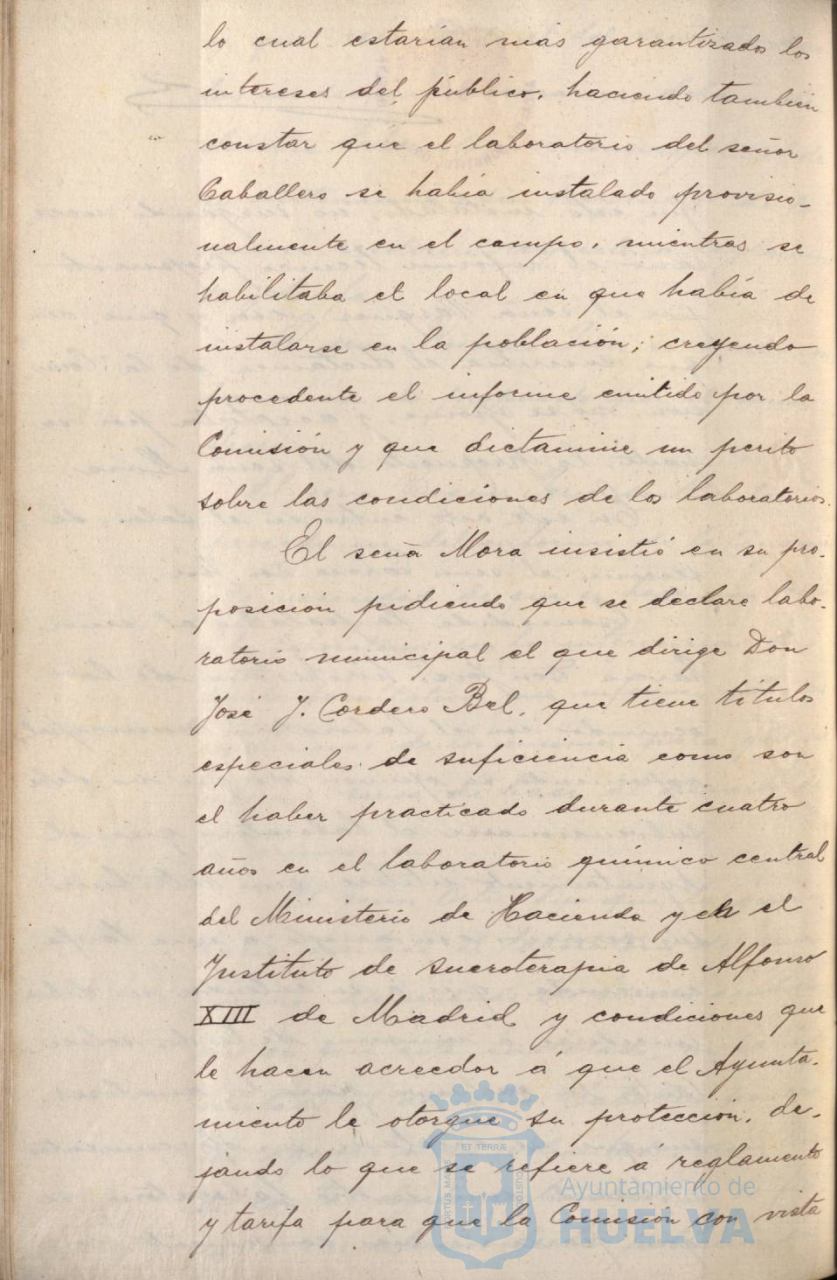 lo cual estarían más garantizados los
intereses del público, haciendo también
constar que el laboratorio del señor
Caballero se había instalado provisio-
nalmente en el campo, mientras se
habilitaba el local en que había de
instalarse en la población; creyendo
procedente el informe emitido por la
Comisión y que dictamine un perito
sobre las condiciones de los laboratorios.
El señor Mora insistió en su pro-
posición pidiendo que se declare labo-
ratorio municipal el que dirige Don
José J. Cordero Bel, que tiene títulos
especiales de suficiencia como son
el haber practicado durante cuatro
años en el laboratorio químico central
del Ministerio de Hacienda y en el
Instituto de sueroterapia de Alfonso
XIII de Madrid y condiciones que
le hacen acreedor á que el Ayunta-
miento le otorgue su protección, de-
jando lo que se refiere á reglamento
y tarifa para que la Comisión con vista
ET TERRÆ
PORTUS MARIS
CUSTODIA
Ayuntamiento de
HUELVA